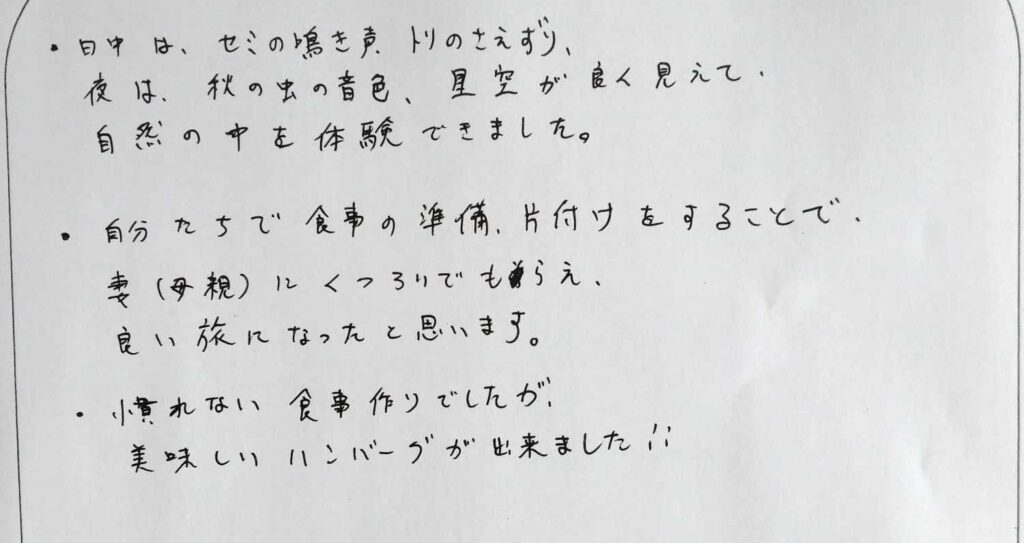 ・日中は、セミの鳴き声、トリのさえずり、
夜は、秋の虫の音色、星空が良く見えて、
自然の中を体験できました。
・自分たちで食事の準備、片付けをすることで、
妻(母親)にくつろいでもらえ、
良い旅になったと思います。
・慣れない食事作りでしたが、
美味しいハンバーグが出来ました!!